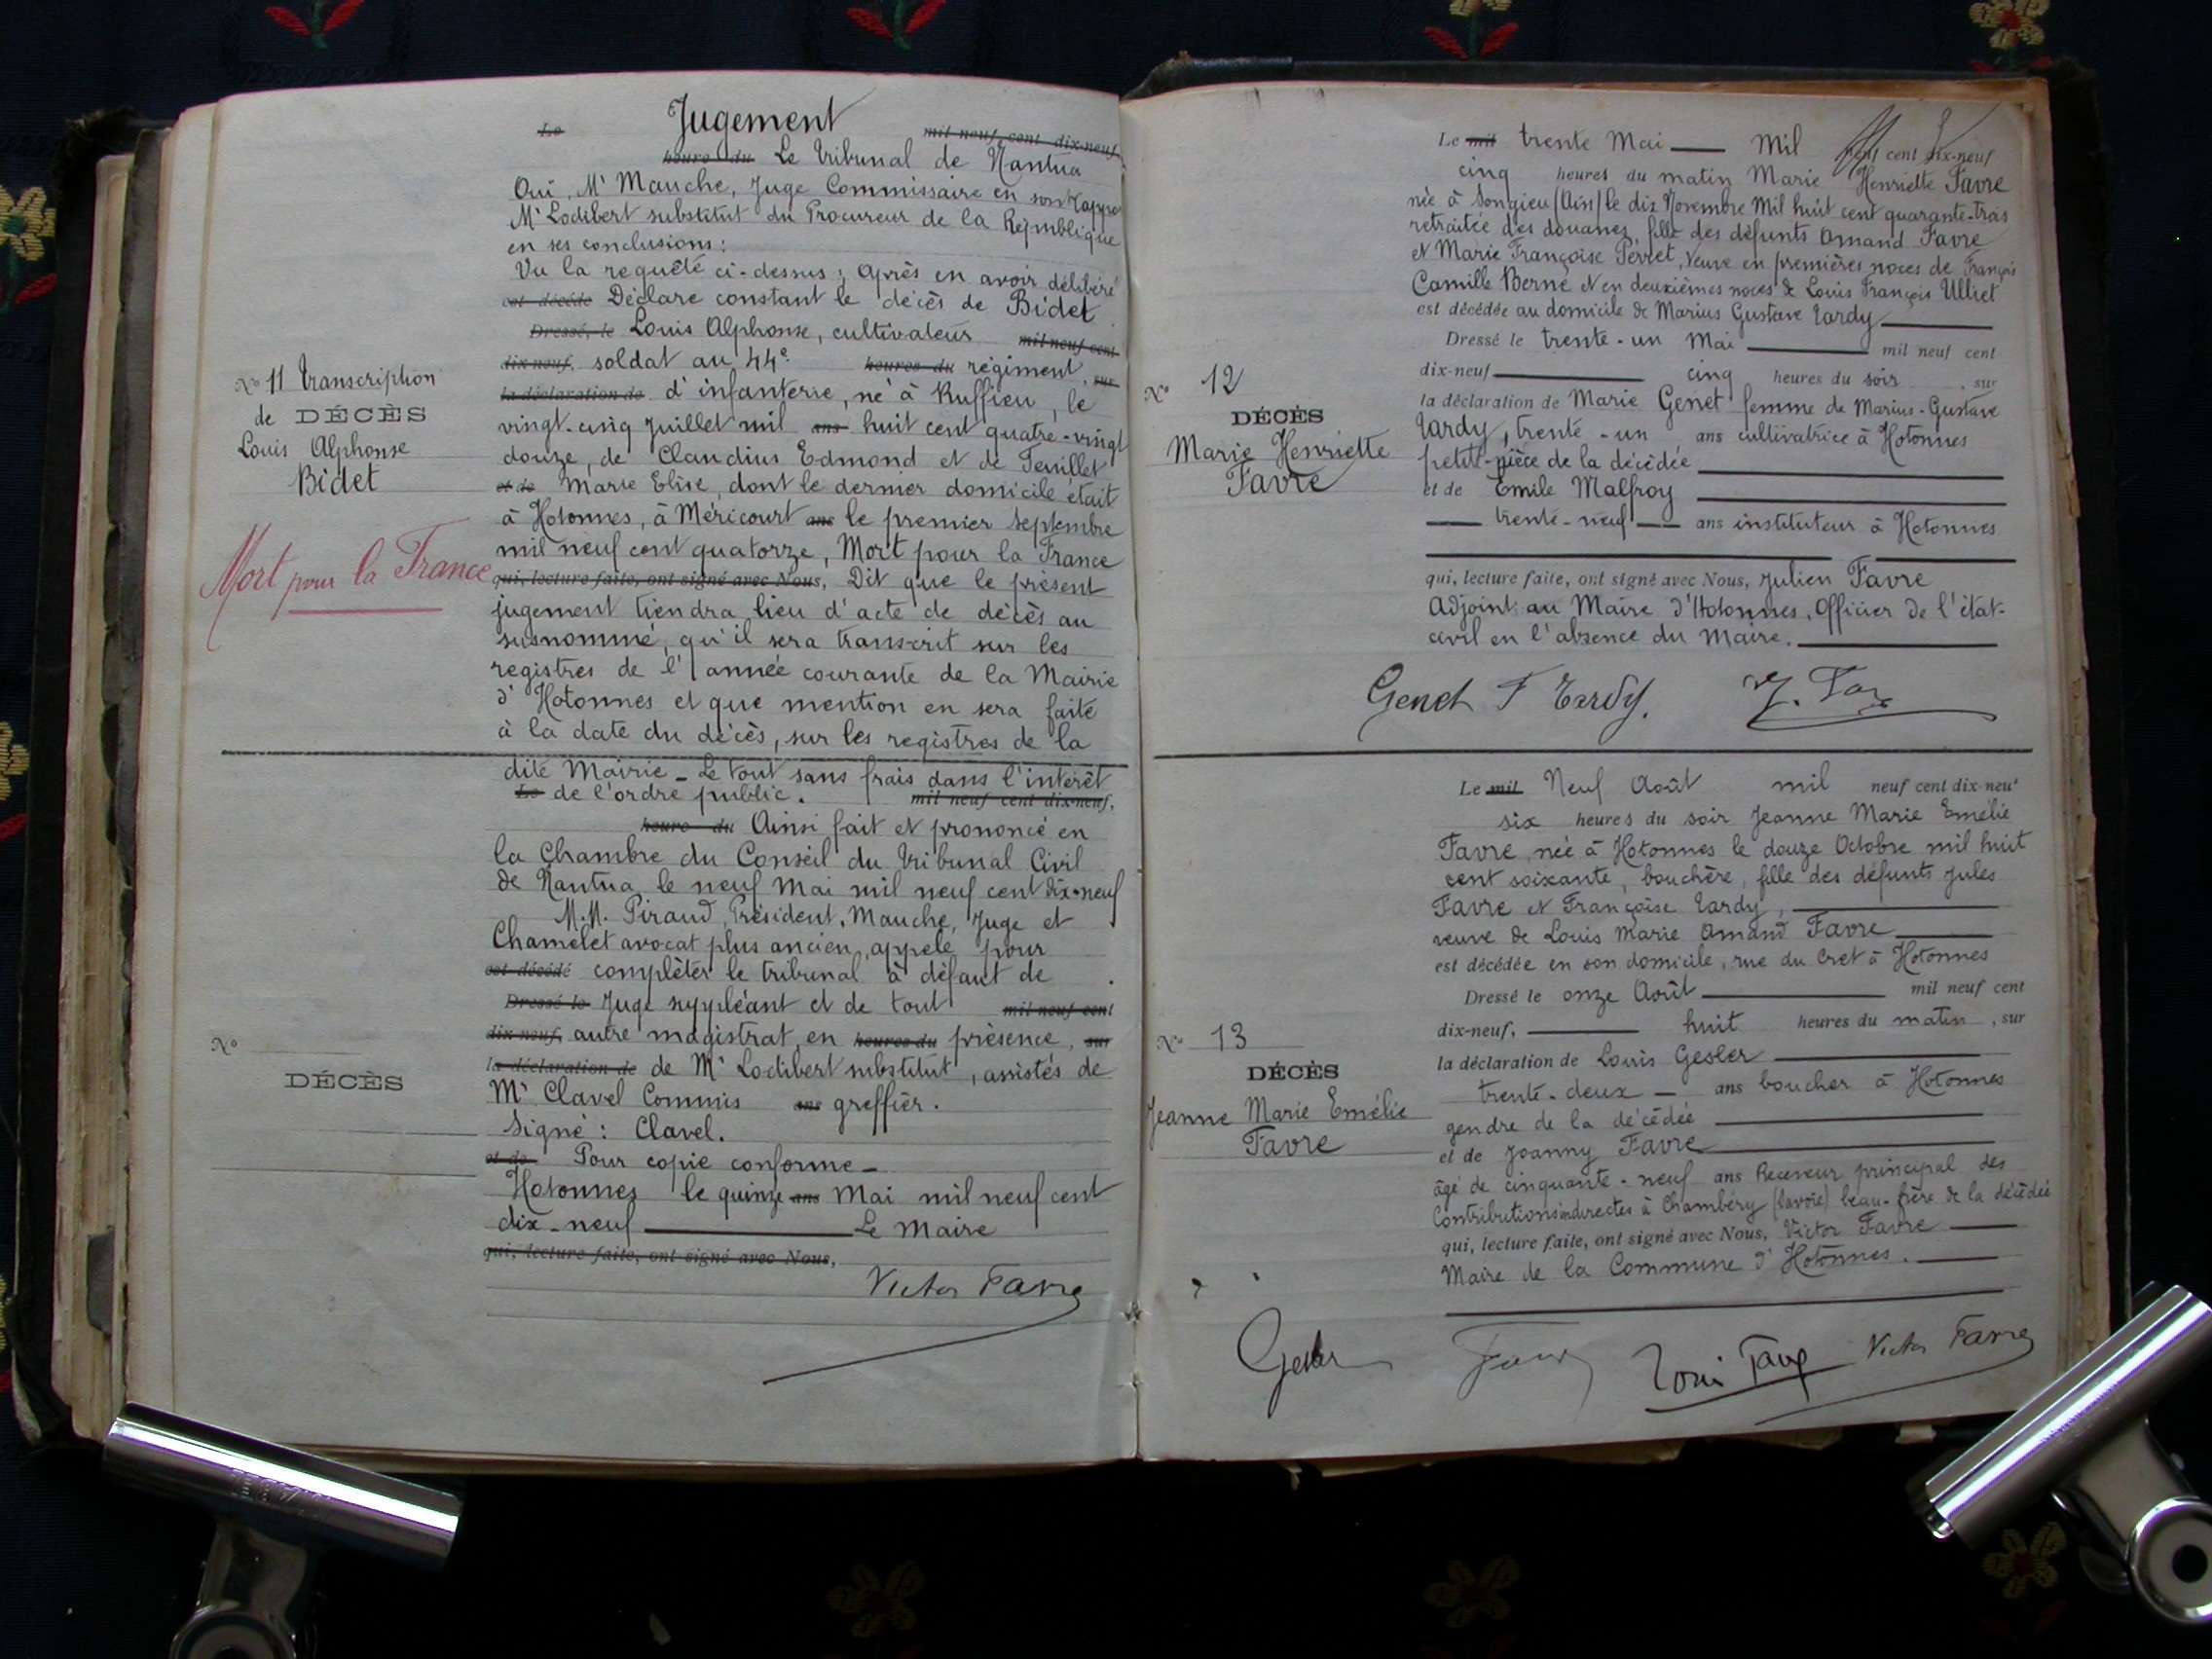 Jugement
Le mil neuf cent dix-neuf
heure du Le Tribunal de Nantua
Ouï, Mr Mauche, Juge Commissaire en son rappo
Mr Lodibert substitut du Procureur de la République
en ses conclusions :
Vu la requête ci-dessus ; Après en avoir délibéré
est décédé Déclare constant le décès de Bidet
Dressé, le Louis Alphonse, cultivateur mil neuf cent
dix-neuf, soldat au 44e heures du régiment, sur
la déclaration de d'infanterie, né à Ruffieu, le
vingt-cinq Juillet mil ans huit cent quatre-vingt
douze, de Claudius Edmond et de Feuillet
et de Marie Elise, dont le dernier domicile était
à Hotonnes, à Méricourt ans le premier Septembre
mil neuf cent quatorze, Mort pour la France
qui, lecture faite, ont signé avec Nous, Dit que le présent
jugement tiendra lieu d'acte de décès au
susnommé, qu'il sera transcrit sur les
registres de l'année courante de la Mairie
d'Hotonnes et que mention en sera faite
à la date du décès, sur les registres de la
No 11 Transcription
de DÉCÈS
Louis Alphonse
Bidet
Mort pour la France
dite Mairie - Le tout sans frais dans l'intérêt
Le de l'ordre public. mil neuf cent dix-neuf,
heure du Ainsi fait et prononcé en
la Chambre du Conseil du Tribunal Civil
de Nantua le neuf Mai mil neuf cent dix-neuf
M.M. Piraud, Président, Mauche, Juge et
Chamelet avocat plus ancien, appelé pour
est décédé compléter le tribunal à défaut de
Dressé le Juge suppléant et de tout mil neuf cent
dix-neuf, autre magistrat, en heures du présence, sur
la déclaration de de Mr Lodibert substitut, assistés de
Mr Clavel Commis ans greffier.
Signé : Clavel.
et de Pour copie conforme -
Hotonnes le quinze ans Mai mil neuf cent
dix-neuf Le Maire
qui, lecture faite, ont signé avec Nous,
Victor Favre
No
DÉCÈS
Le mil trente Mai Mil neuf cent dix-neuf
cinq heures du matin Marie Henriette Favre
née à Songieu (Ain) le dix Novembre Mil huit cent quarante-trois
retraitée des douanes, fille des défunts Amand Favre
et Marie Françoise Perret, Veuve en premières noces de François
Camille Berne et en deuxièmes noces de Louis François Ulliet
est décédée au domicile de Marius Gustave Tardy
Dressé le trente-un Mai mil neuf cent
dix-neuf cinq heures du soir, sur
la déclaration de Marie Genet femme de Marius-Gustave
Tardy, trente-un ans cultivatrice à Hotonnes
petite-nièce de la décédée
et de Emile Malfroy
trente-neuf ans instituteur à Hotonnes
qui, lecture faite, ont signé avec Nous, Julien Favre
Adjoint au Maire d'Hotonnes, Officier de l'état-
civil en l'absence du Maire.
Genet F Tardy. J. Fav
No 12
DÉCÈS
Marie Henriette
Favre
Le mil Neuf Août mil neuf cent dix-neuf
six heures du soir Jeanne Marie Emélie
Favre, née à Hotonnes le douze Octobre mil huit
cent soixante, bouchère, fille des défunts Jules
Favre et Françoise Tardy,
veuve de Louis Marie Amand Favre
est décédée en son domicile, rue du Cret à Hotonnes
Dressé le onze Août mil neuf cent
dix-neuf, huit heures du matin, sur
la déclaration de Louis Gesler
trente-deux ans boucher à Hotonnes
gendre de la décédée
et de Joanny Favre
âgé de cinquante-neuf ans Receveur principal des
Contributions indirectes à Chambéry (Savoie) beau-frère de la décédée
qui, lecture faite, ont signé avec Nous, Victor Favre
Maire de la Commune d'Hotonnes.
No 13
DÉCÈS
Jeanne Marie Emélie
Favre
Gesler Victor Favre